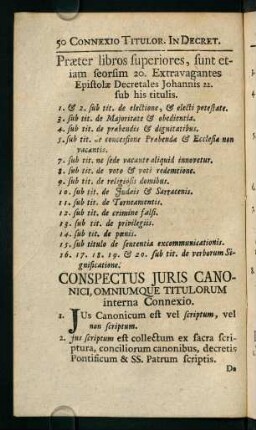 50 CONNEXIO TITULOR. IN DECRET.
Præter libros superiores, sunt et-
iam seorsim 20. Extravagantes
Epistolæ Decretales Johannis 22.
sub his titulis.
1. & 2. sub tit. de electione, & electi potestate.
3. sub tit. de Majoritate & obedientia.
4. sub tit. de præbendis & dignitatibus.
5. sub tit. de concessione Præbendæ & Ecclesiæ non
vacantis.
7. sub tit. ne sede vacante aliquid innovetur.
8. sub tit. de voto & voti redemtione.
9. sub tit. de religiosis domibus.
10. sub tit. de Judæis & Sarracenis.
11. sub tit. de Torneamentis.
12. sub tit. de crimine falsi.
13. sub tit. de privilegiis.
14. sub tit. de pœnis.
15. sub titulo de sententia excommunicationis.
16. 17. 18. 19. & 20. sub tit. de verborum Si-
gnificatione.
CONSPECTUS JURIS CANO-
NICI, OMNIUMQUE TITULORUM
interna Connexio.
1. JUs Canonicum est vel scriptum, vel
non scriptum.
2. Jus scriptum est collectum ex sacra scri-
ptura, conciliorum canonibus, decretis
Pontificum & SS. Patrum scriptis.
De